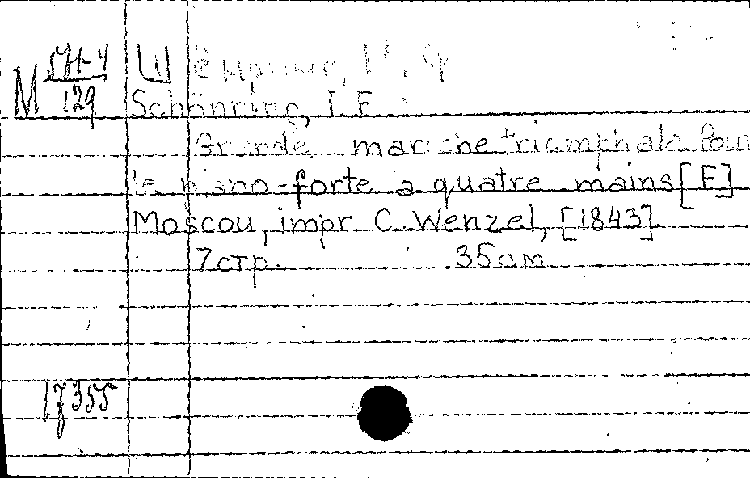 M 571-4
129
Schönring, I. F.
Grande marche triomphale pour
le piano-forte a quatre mains [F]
Moscou, impr C. Wenzel, [1843]
7 стр. 35 см
17355